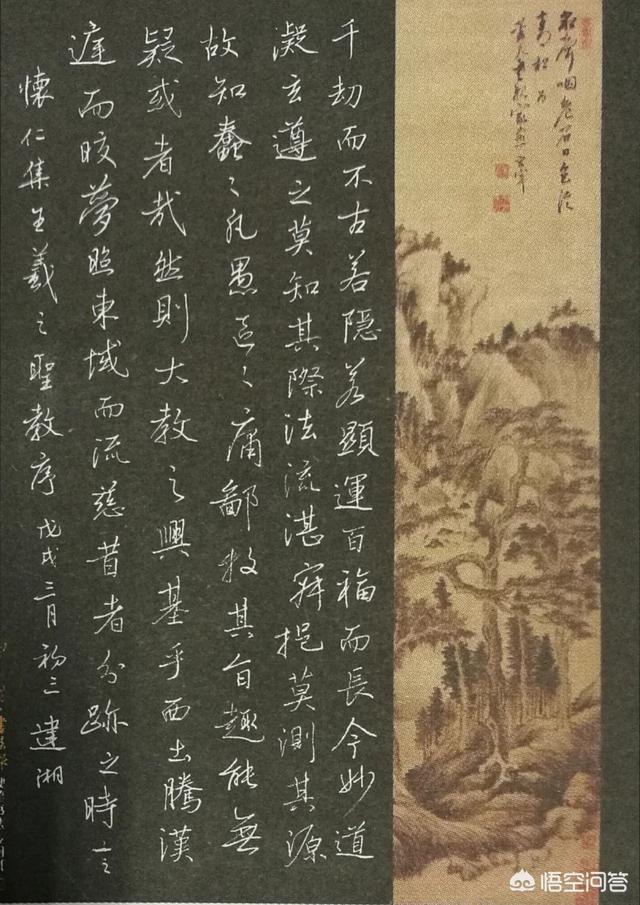 泉聲咽危石日色冷
青松
千劫而不古若隱若顯運百福而長今妙道
凝玄遵之莫知其際法流湛寂挹莫測其源
故知蠢々凡愚區々庸鄙投其旨趣能無
疑或者哉然則大教之興基乎西土騰漢
庭而皎夢照東域而流慈昔者分跡之時言
懷仁集王羲之聖教序 戊戌三月初三 建湘
悟空问答